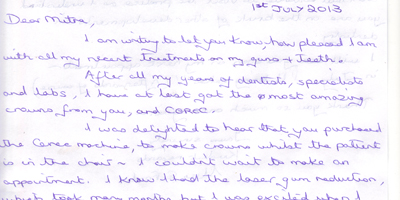 1st JULY 2013
Dear Mitra,
I am writing to let you know, how pleased I am
with all my recent treatments on my gums + teeth.
After all my years of dentists, specialists
and labs, I have at last got the most amazing
crowns, from you, and CEREC.
I was delighted to hear that you purchased
the Cerec machine, to make crowns whilst the patient
is in the chair - I couldn't wait to make an
appointment. I know I had the laser gum reduction,
which took many months but I was excited when I